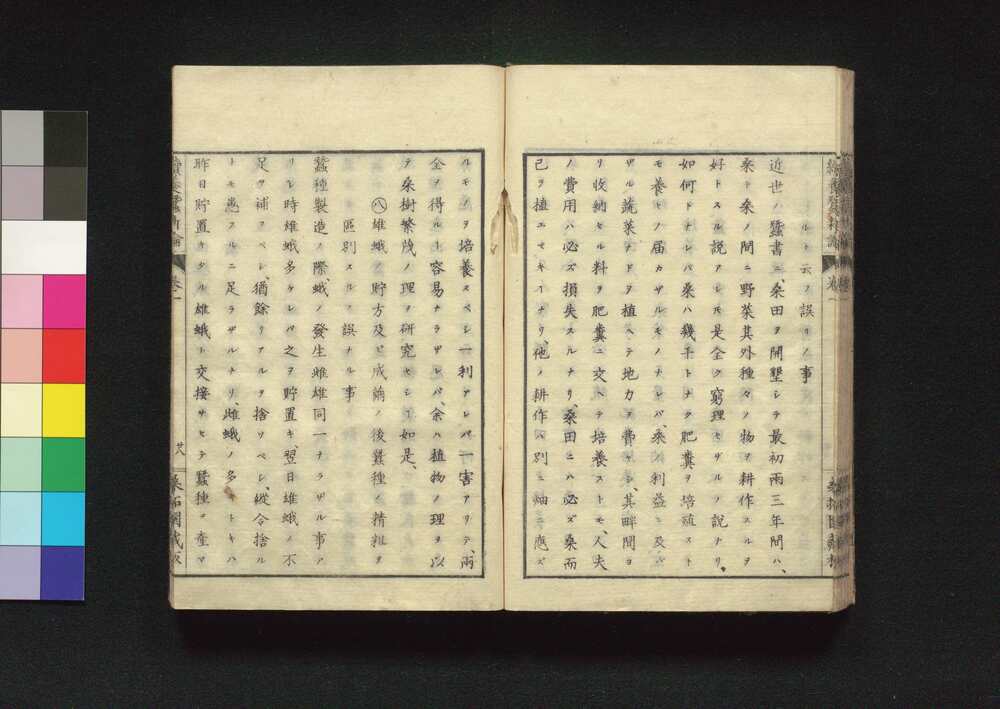 ルト云ノ誤リノ事
近世ハ蠶書ニ桑田ヲ開墾シテ最初兩三年間ハ、
桑ト桑ノ間ニ野菜其外種々ノ物ヲ耕作スルヲ
好トスル説アレ𪜈是全ク窮理セザルノ説ナリ、
如何トナレバ桑ハ幾千トナク肥糞ヲ培殖スト
モ養ヒノ届カザルモノナレバ、桑ノ利益ニ及バ
ザル蔬菜ナドヲ植ヘテ地力ヲ費シ、其畔間ヨ
リ收納セル料ヲ肥糞ニ交ヘテ培養ストモ、人夫
ノ費用ハ必ズ損失スルナリ、桑田ニハ必ズ桑而
已ヲ植エベキヿナリ、他ノ耕作ハ別ニ畑ニ應ズ
ルモノヲ培養スベシ一利アレバ一害アリテ、兩
全ヲ得ルヿ容易ナラザレバ、余ハ植物ノ理ヲ以
テ桑樹繁茂ノ理ヲ研究セシヿ如是、
㊇雄蛾ノ貯方及ビ成繭ノ後蠶種ノ精粗ヲ
區別スルノ誤ナル事
蠶種製造ノ際、蛾ノ發生雌雄同一ナラザル事ア
リシ時雄蛾多ケレバ之ヲ貯置キ、翌日雄蛾ノ不
足ヲ補フベシ、猶餘リアルヲ捨ツベシ、縱令捨ル
トモ患スルニ足ラザルナリ、雌蛾ノ多キトキハ
昨日貯置キタル雄蛾ト交接サセテ蠶種ヲ産マ
卷一
卷一